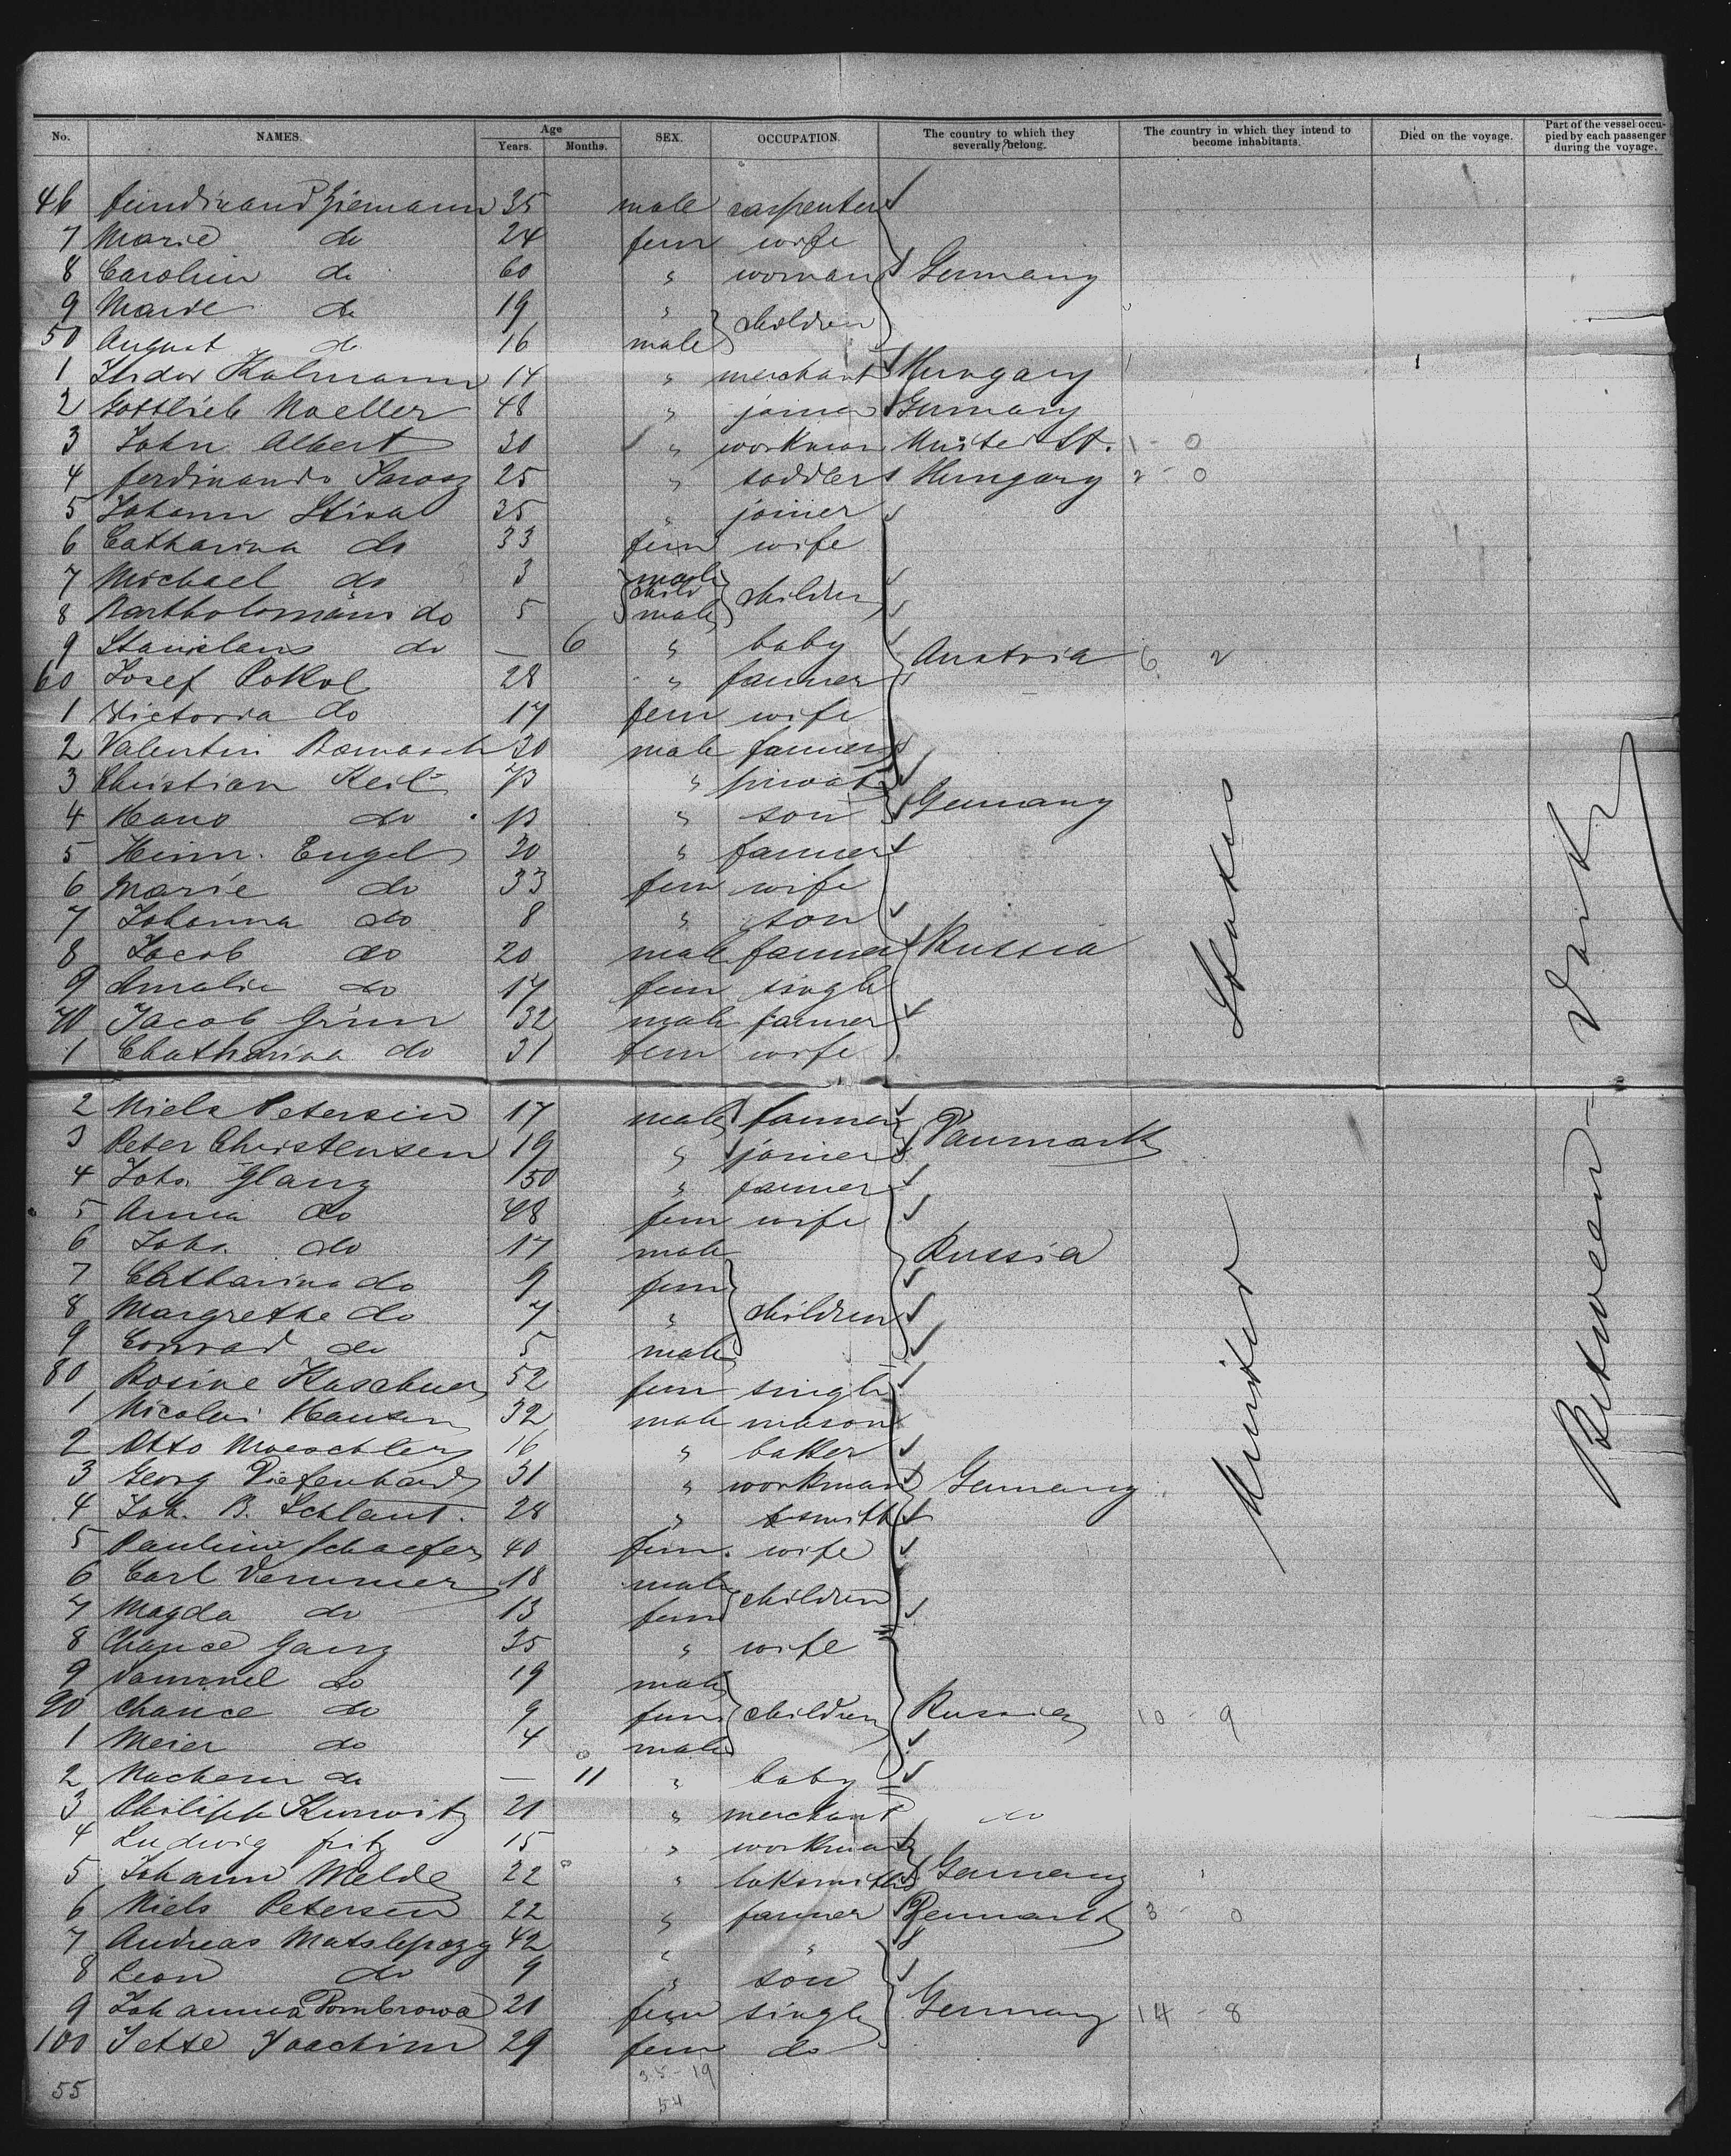 No. NAMES. Age Years. Months. SEX. OCCUPATION. The country to which they severally belong. The country in which they intend to become inhabitants. Died on the voyage. Part of the vessel occupied by each passenger during the voyage.
46 Ferdinand Ziemann 35 male carpenter
7 Marie do 24 fem wife
8 Carolin do 60 " woman Germany
9 Marie do 19 " children
50 August do 16 male
1 Isidor Kalmann 14 " merchant Hungary
2 Gottlieb Noeller 48 " joiner Germany
3 John Albert 30 " workman United St. 1 - 0
4 Ferdinando 25 " saddler Hungary 2 - 0
5 Johann 35 " joiner
6 Catharina do 33 fem wife
7 Michael do 3 male child children
8 Bartholomäus do 5 male
9 Stanislaus do — 6 " baby Austria 6 2
60 Josef Pokol 28 " farmer
1 Victoria do 17 fem wife
2 Valentin 30 male farmer
3 Christian Keil " privat
4 Hans do " son Germany
5 Heinr. Engel 30 " farmer
6 Marie do 33 fem wife
7 Johanna do 8 " son
8 Jacob do 20 male farmer Russia
9 Amalia do 17 fem single
70 Jacob Grün 32 male farmer
1 Chatharina do 31 fem wife
2 Niels Petersen 17 male farmer Danmark
3 Peter Christensen 19 " joiner
4 Joh. Glanz 50 " farmer
5 Anna do 48 fem wife
6 Joh. do 17 male Russia
7 Chatharina do 9 fem
8 Margrethe do 7 " children
9 Conrad do 5 male
80 Rosine Kaschner 52 fem single
1 Nicolai Hansen 32 male mason
2 Otto Moeschler 16 " baker
3 Georg Diefenbard 31 " workman Germany
4 Joh. B. Schlaut. 28 " smith
5 Pauline Schaefer 40 fem. wife
6 Carl Demmer 18 male children
7 Magda do 13 fem
8 Chance Ganz 35 " wife
9 Sammel do 19 male
90 Chance do 9 fem children Russia 10 - 9
1 Meier do 4 male
2 Nachem do — 11 " baby
3 Philipp Kurwitz 21 " merchant do
4 Ludwig Fritz 15 " workman
5 Johann Melde 22 " loksmith Germany
6 Niels Petersen 22 " farmer Denmark 3 - 0
7 Andreas 42 " "
8 Leon do 9 " son
9 Johanna Dombrowa 21 fem single Germany 14 - 8
100 Jette Joachim 29 fem do
55 35 - 19
54
United States
Between Deck